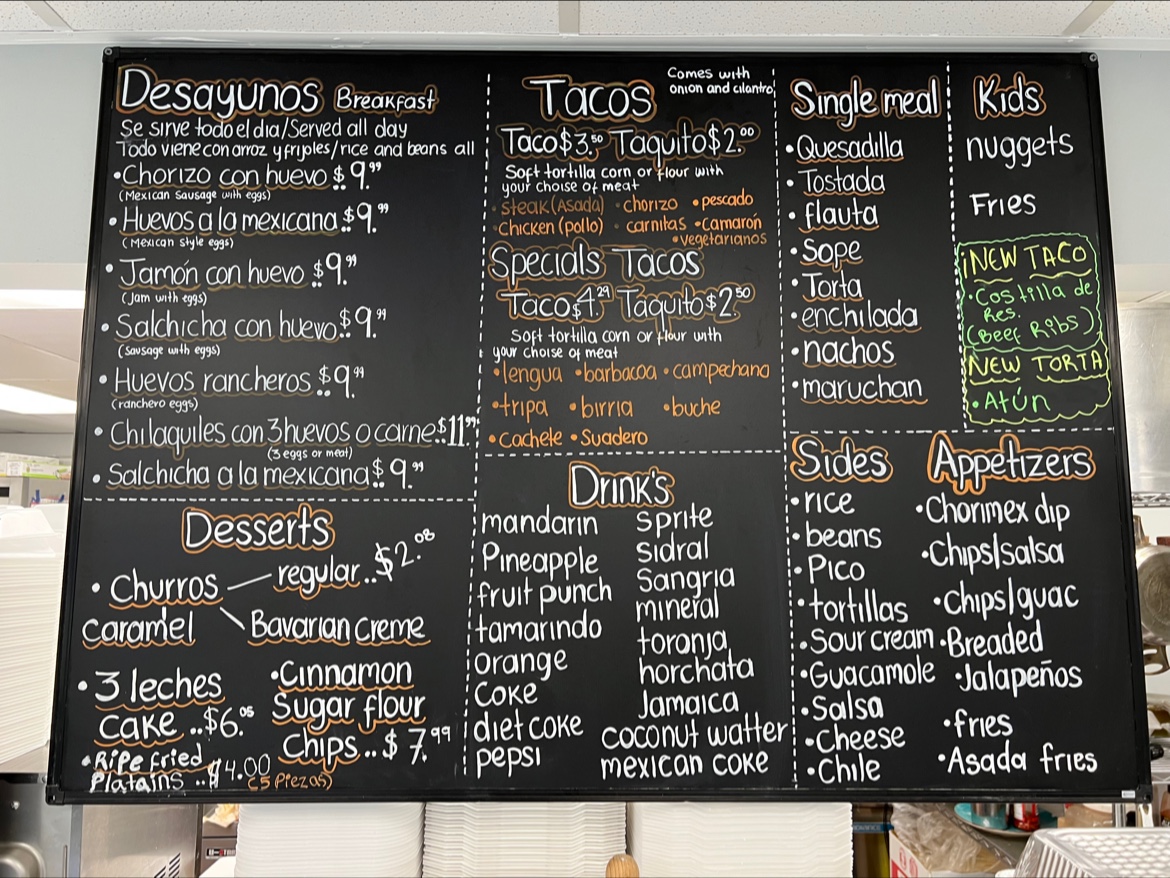 Desayunos Breakfast
Se sirve todo el dia/Served all day
Todo viene con arroz y frijoles/rice and beans all
•Chorizo con huevo $9.99
(Mexican Sausage with eggs)
•Huevos a la mexicana $9.99
(Mexican style eggs)
•Jamón con huevo $9.99
(Jam with eggs)
•Salchicha con huevo $9.99
(Sausage with eggs)
•Huevos rancheros $9.99
(ranchero eggs)
•Chilaquiles con 3 huevos o carne $11.99
(3 eggs or meat)
•Salchicha a la mexicana $9.99
Desserts
•Churros — regular..$2.08
caramel \ Bavarian creme
•3 leches
cake ..$6.05
•Ripe fried
Platains ..$4.00 (5 Piezas)
•Cinnamon
Sugar flour
Chips..$7.99
Tacos
Comes with
onion and cilantro
Taco $3.50 Taquito $2.00
Soft tortilla corn or flour with
your choise of meat
•steak (Asada) •chorizo •pescado
•chicken (pollo) •carnitas •camarón
•vegetarianos
Specials Tacos
Taco $4.29 Taquito $2.50
Soft tortilla corn or flour with
your choise of meat
•lengua •barbacoa •campechana
•tripa •birria •buche
•Cachete •Suadero
Drink's
mandarin
Pineapple
fruit punch
tamarindo
orange
coke
diet coke
pepsi
Sprite
Sidral
Sangria
mineral
toronja
horchata
Jamaica
coconut watter
mexican coke
Single meal
•Quesadilla
•Tostada
•flauta
•Sope
•Torta
•enchilada
•nachos
•maruchan
Kids
nuggets
Fries
¡NEW TACO
•Costilla de
Res.
(Beef Ribs)
NEW TORTA
•Atún
Sides
•rice
•beans
•Pico
•tortillas
•Sour cream
•Guacamole
•Salsa
•Cheese
•Chile
Appetizers
•Chorimex dip
•Chips/salsa
•Chips/guac
•Breaded
•Jalapeños
•fries
•Asada fries